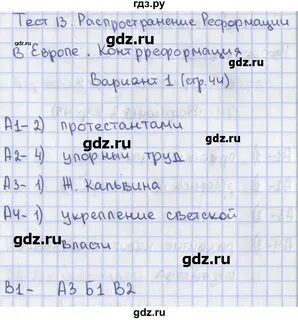 гдз.ру
Тест 13. Распространение Реформации
в Европе. Контрреформация
Вариант 1 (стр.44)
А1- 2) протестантами
А2- 4) упорный труд
А3- 1) Ж. Кальвина
А4- 1) укрепление светской
власти
В1- А3 Б1 В2
gdz.ru gdz.ru
gdz.ru gdz.ru
gdz.ru gdz.ru
gdz.ru gdz.ru